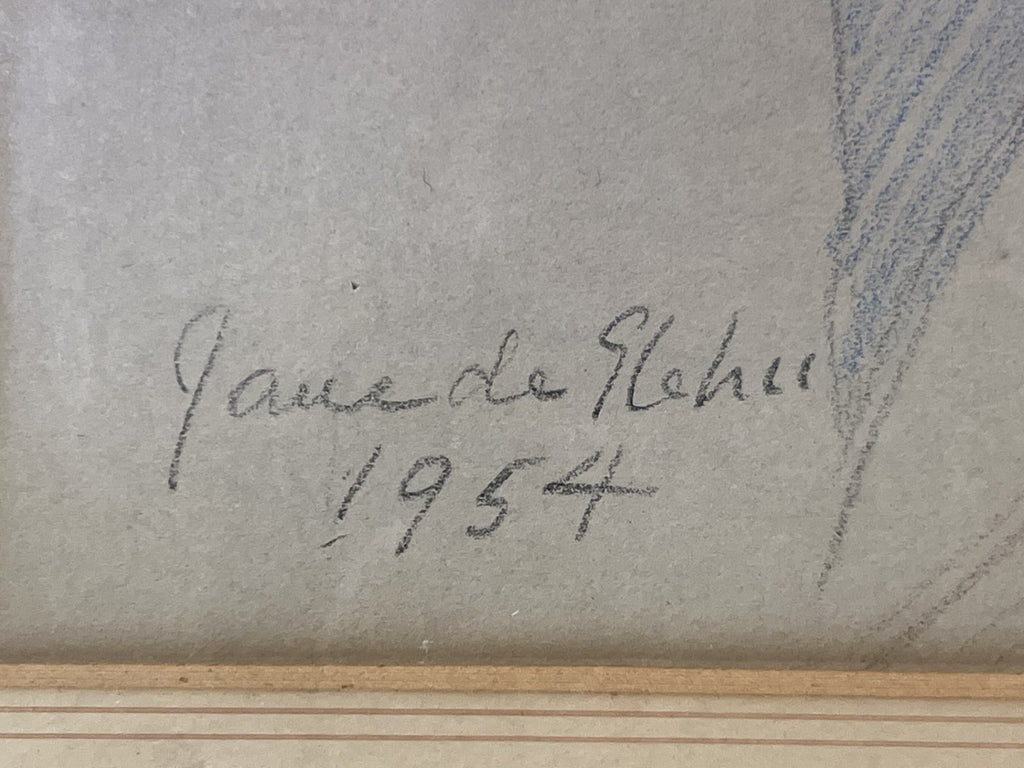 Jane de Glehn
1954